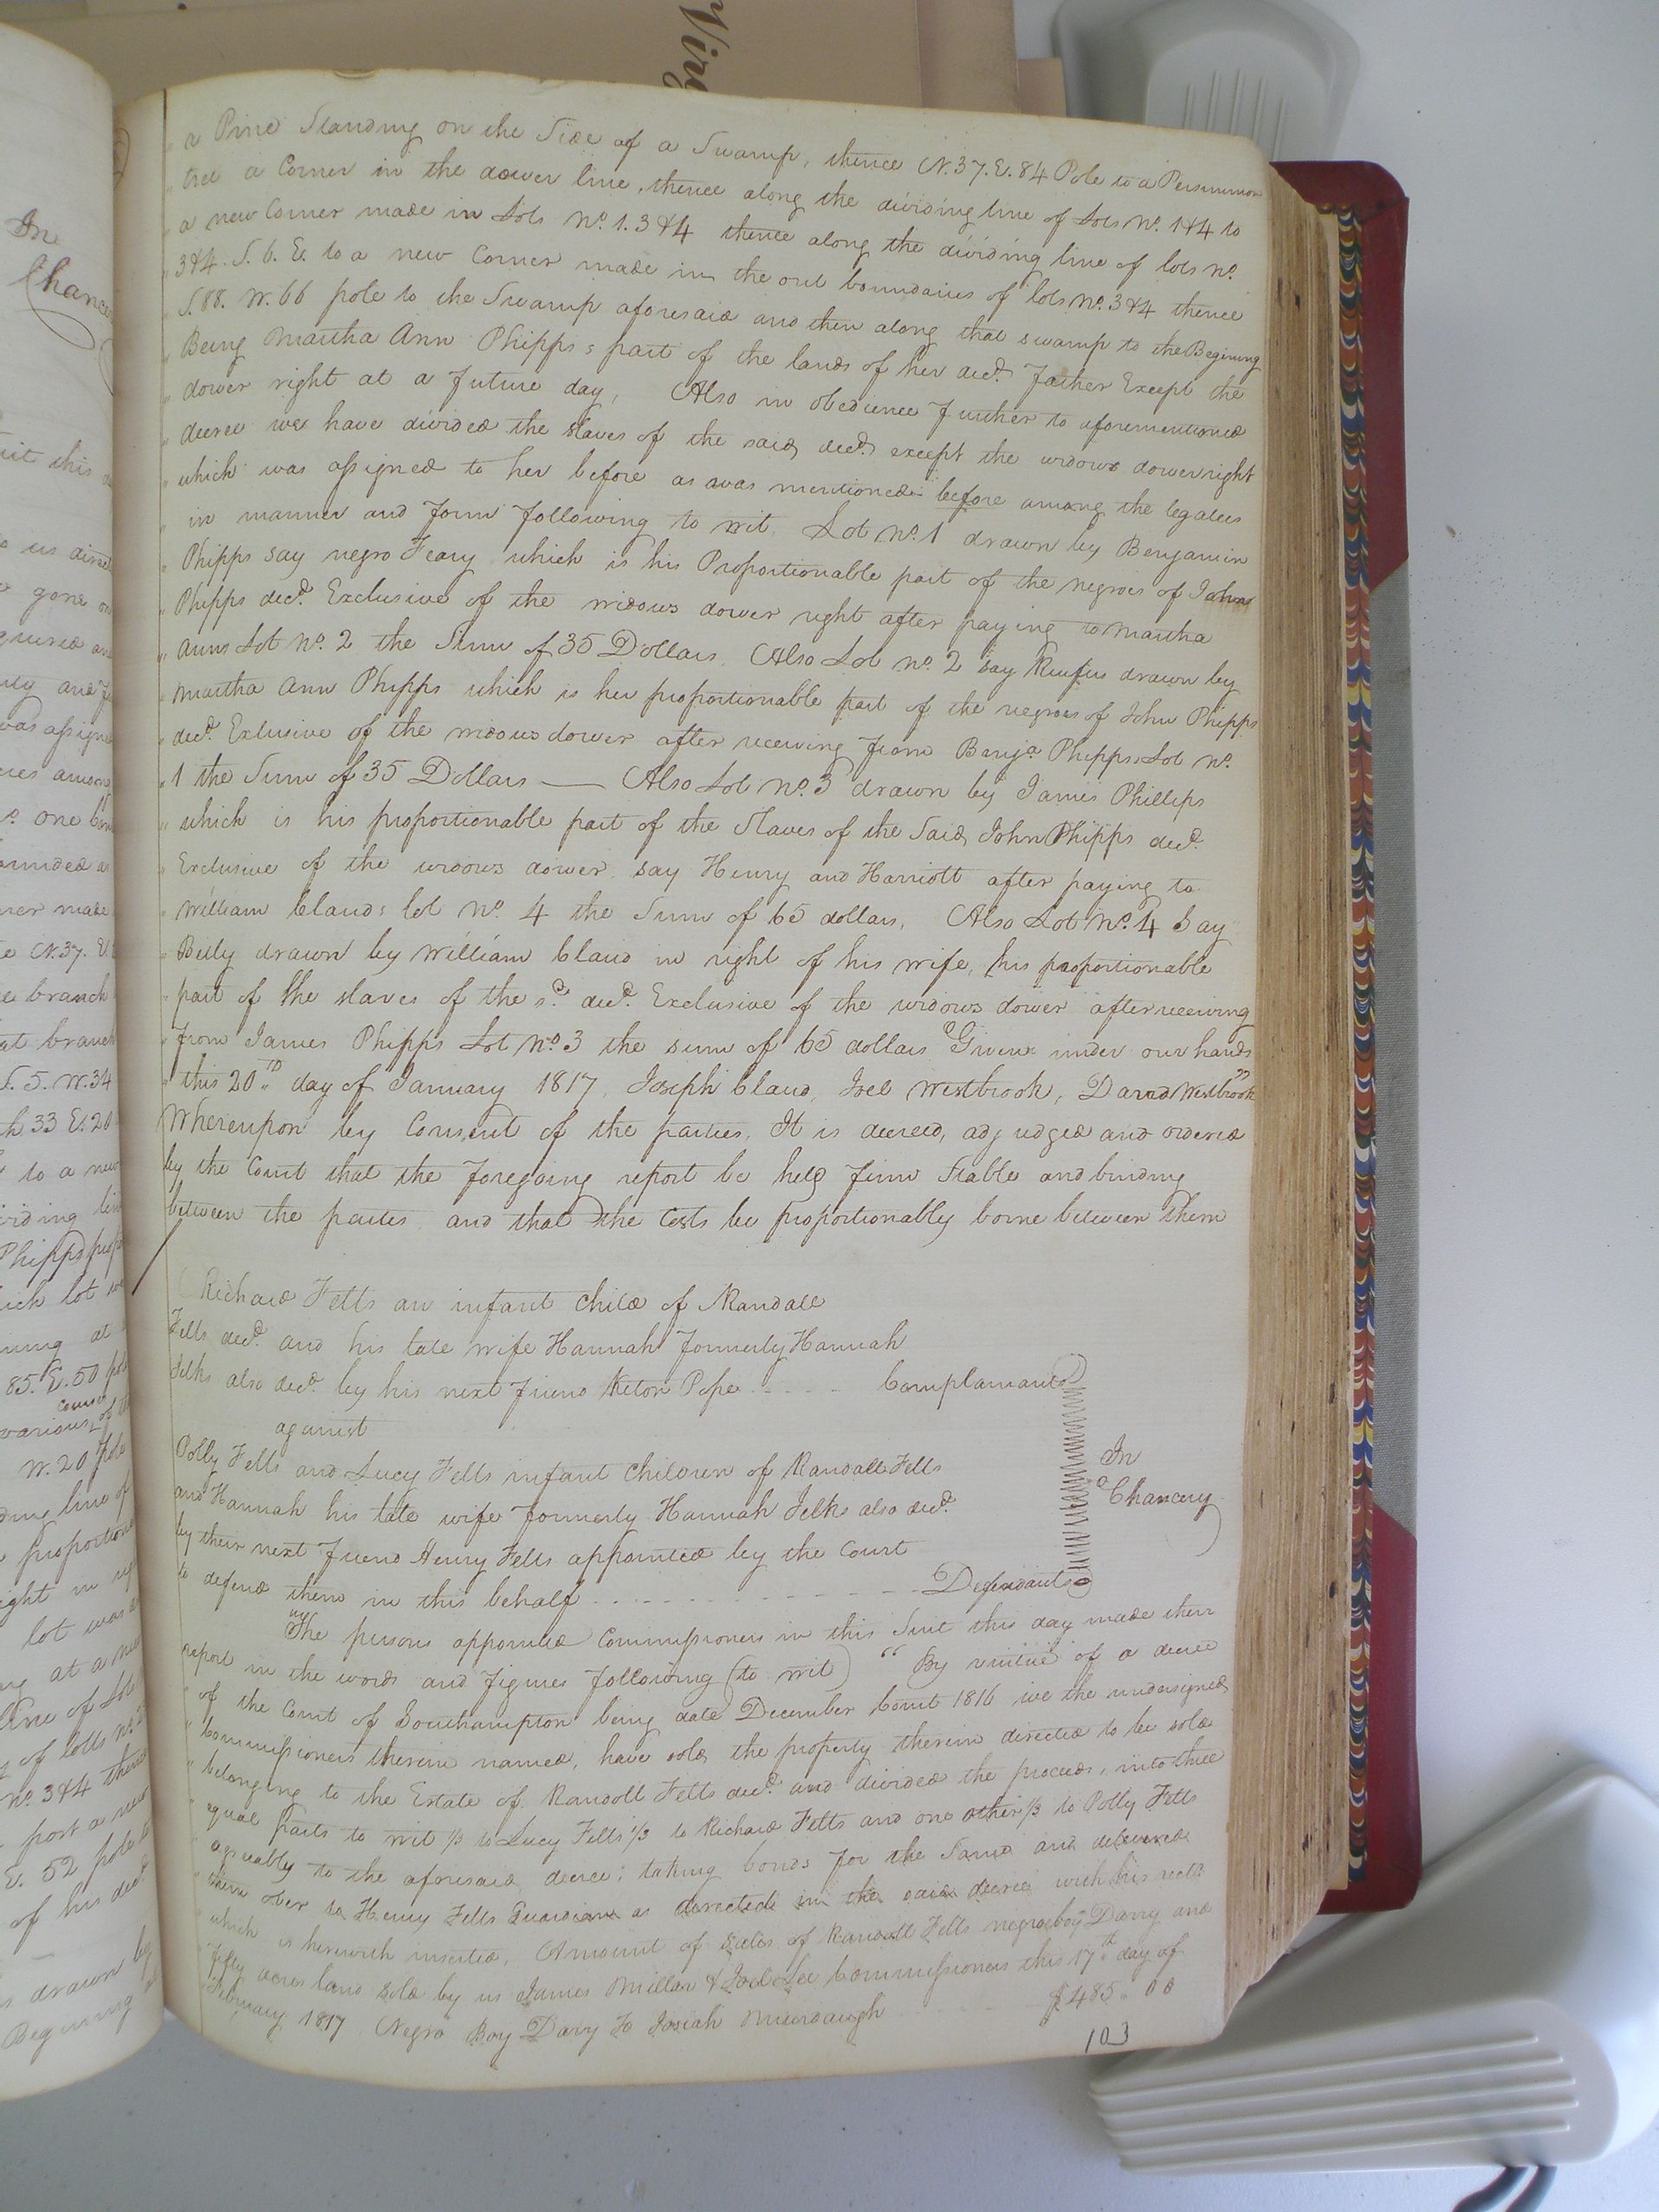 Virg
In
Chance
a Pine Standing on the Side of a Swamp, thence N. 37. E. 84 Pole to a Persimmon
tree a Corner in the dower line, thence along the dividing line of Lots No. 1 & 4 to
a new Corner made in Lots No. 1. 3 & 4 thence along the dividing line of lots No.
3 & 4. S. 6. E. to a new Corner made in the out boundaries of lots No. 3 & 4 thence
S. 88. W. 66 pole to the Swamp aforesaid and then along that swamp to the Begining
Being Martha Ann Phipps's part of the lands of her decd. Father Except the
dower right at a future day, Also in obedience further to aforementioned
decree we have divided the slaves of the said decd. except the widows dower right
which was assigned to her before as was mentioned before among the legatees
in manner and form following to wit, Lot No. 1 drawn by Benjamin
Phipps say negro Feary which is his Proportionable part of the negroes of John
Phipps decd. Exclusive of the widows dower right after paying to Martha
Anns Lot No. 2 the Sum of 35 Dollars. Also Lot No. 2 say Rufus drawn by
Martha Ann Phipps which is her proportionable part of the negroes of John Phipps
decd. Exlusive of the widows dower after receiving from Benja. Phipps Lot No.
1 the Sum of 35 Dollars — Also Lot No. 3 drawn by James Phillips
which is his proportionable part of the Slaves of the Said John Phipps decd.
Exclusive of the widows dower, say Henry and Harriott after paying to
William Clauds lot No. 4 the Sum of 65 dollars, Also Lot No. 4 Say
Billy drawn by William Claud in right of his wife, his proportionable
part of the slaves of the sd. decd. Exclusive of the widows dower after receiving
from James Phipps Lot No. 3 the sum of 65 dollars Given under our hands
this 20th day of January 1817, Joseph Claud, Joel Westbrook, David Westbrook"
Whereupon by Consent of the parties, It is decreed, adjudged and ordered
by the Court that the foregoing report be held firm Stable and binding
between the parties and that the Costs be proportionably borne between them
Richard Felts an infant child of Randall
Felts decd. and his late wife Hannah formerly Hannah
Jelks also decd. by his next friend Keton Pope - - - - Complainant
against
Polly Felts and Lucy Felts infant Children of Randall Felts
and Hannah his late wife formerly Hannah Jelks also decd.
by their next friend Henry Felts appointed by the Court
to defend them in this behalf - - - - - - - - Defendants
In
Chancery
The persons appointed Commissioners in this Suit this day made their
report in the words and figures following (to wit) "By virtue of a decree
of the Court of Southampton being date December Court 1816 we the undersigned
Commissioners therein named, have sold the property therein directed to be sold
belonging to the Estate of Randoll Felts decd. and divided the proceeds, into three
equal parts to wit 1/3 to Lucy Felts 1/3 to Richard Felts and one other 1/3 to Polly Felts
agreeably to the aforesaid decree; taking bonds for the Same and delivered
them over to Henry Felts Guardian as directed in the said decree with his rect.
which is herewith inserted, Amount of Sales of Randoll Felts negro boy Davy and
fifty acres land sold by us James Millar & Joel Lee Commissioners this 17th day of
February 1817 Negro Boy Davy To Josiah Murdaugh - - - $485.. 00
103